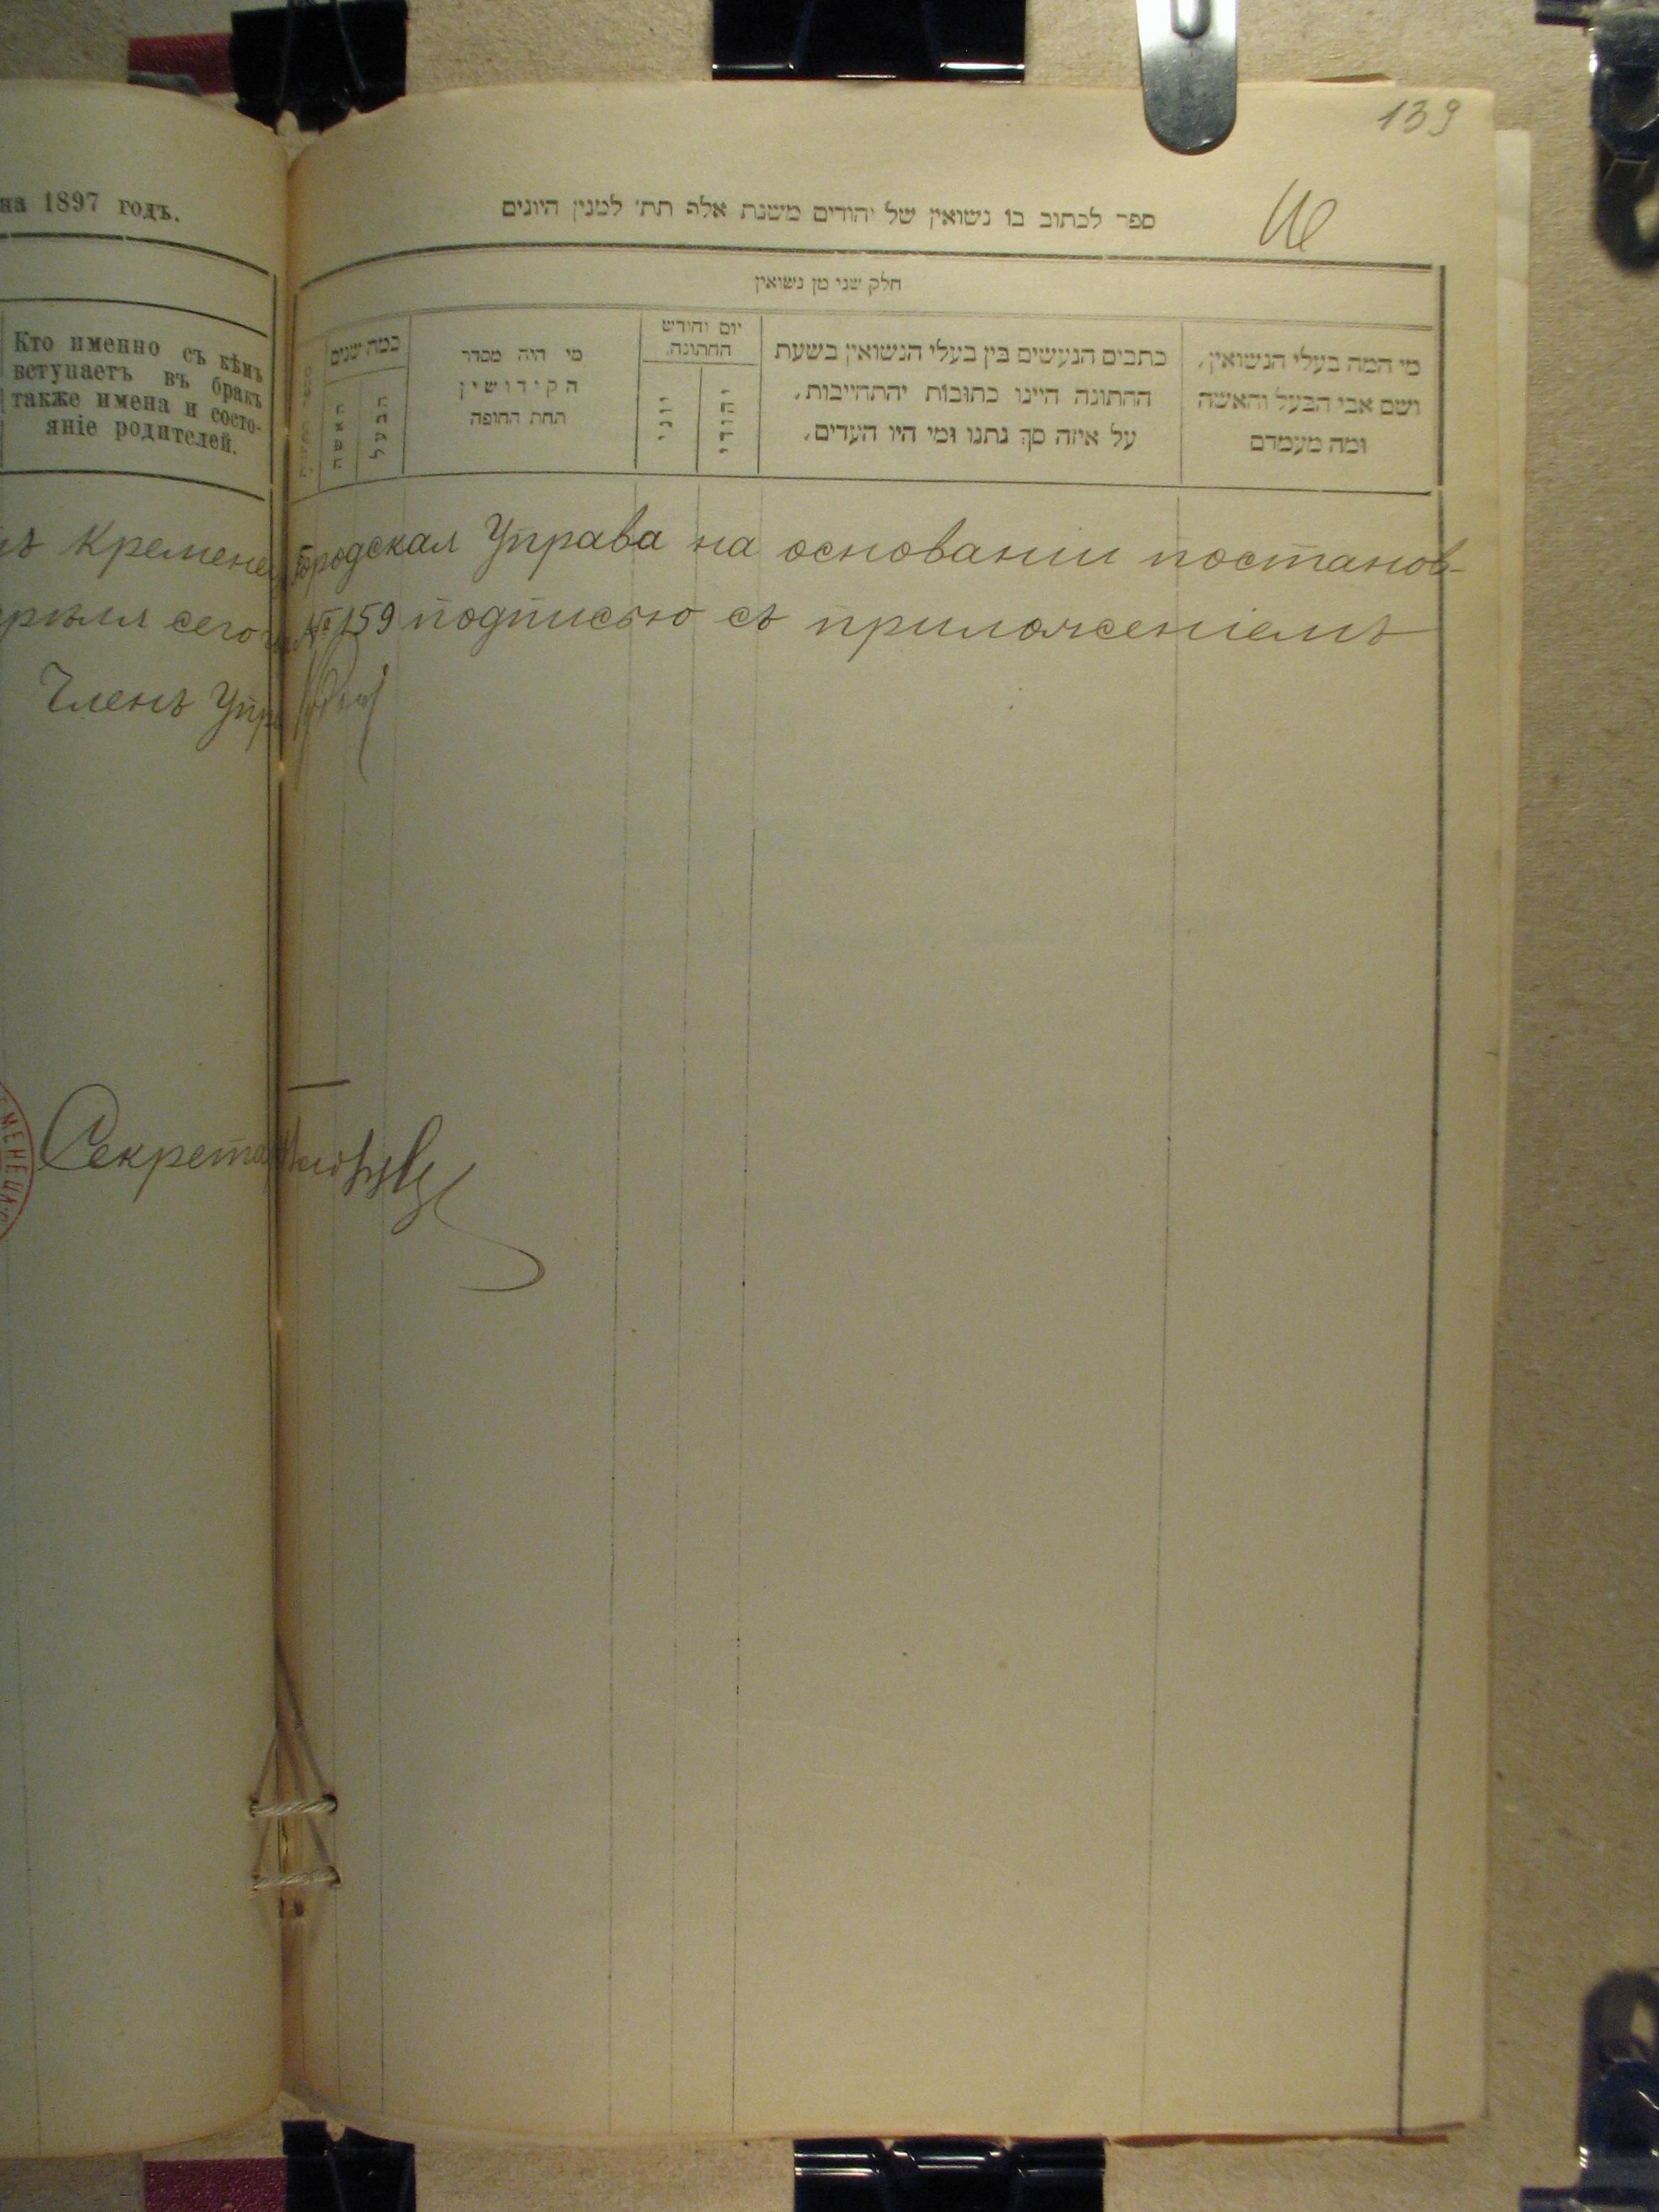 на 1897 годъ.
Кто именно съ кѣмъ
вступаетъ въ бракъ
также имена и состо-
яніе родителей.
139
ספר לכתוב בו נשואין של יהודים משנת אלף תת׳ למנין היונים
חלק שני מן נשואין
במה שנים
האשה
הבעל
מי היה מסדר
הקידושין
תחת החופה
יום וחודש
החתונה.
יוני
יהודי
כתבים הנעשים בין בעלי הנשואין בשעת
החתונה היינו כתובות יהתחייבות,
על איזה סך נתנו ומי היו העדים.
מי המה בעלי הנשואין,
ושם אבי הבעל והאשה
ומה מעמדם
Кремене Городская Управа на основании постанов-
сего №159 подписью съ приложеніемъ
Членъ Упр
Секрета
МЕНЕЦ